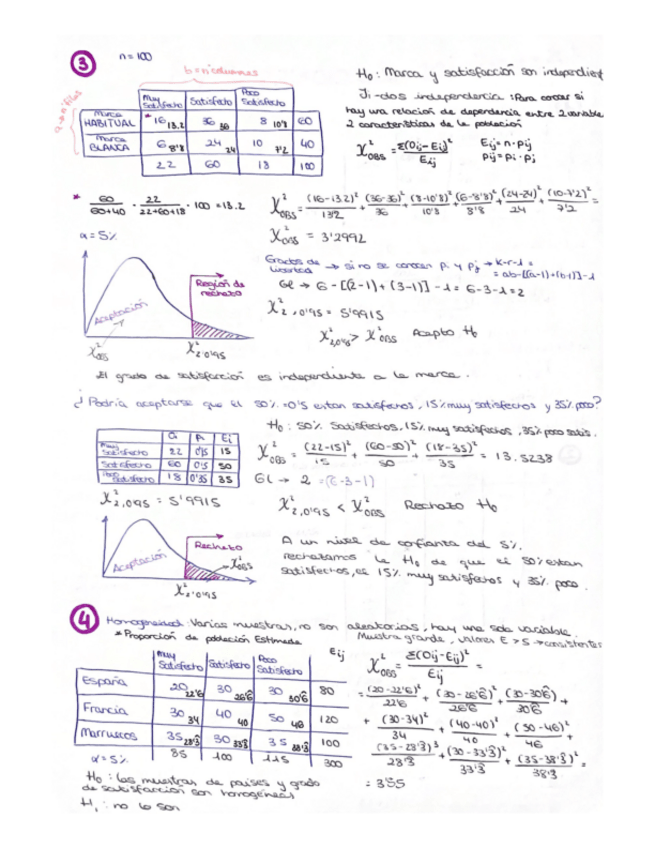 ③ n=100
b=nºcolumnas
a→nºfilas
Muy Satisfecho | Satisfecho | Poco Satisfecho
Marca HABITUAL | *16 13.2 | 36 36 | 8 10'8 | 60
Marca BLANCA | 6 8'8 | 24 24 | 10 7'2 | 40
22 | 60 | 18 | 100
H₀: Marca y satisfacción son independient
Ji-dos independencia: Para conocer si
hay una relación de dependencia entre 2 variable
2 características de la población
X²OBS = Σ(Oij-Eij)² / Eij
Eij = n·Pij
Pij = Pi·Pj
* 60/60+40 · 22/22+60+18 · 100 = 13.2
X²OBS = (16-13.2)²/13'2 + (36-36)²/36 + (8-10'8)²/10'8 + (6-8'8)²/8'8 + (24-24)²/24 + (10-7'2)²/7'2 =
α=5%
X²OBS = 3'2992
Grados de libertad → si no se conocen Pi y Pj → k-r-1 =
= ab-[(a-1)+(b-1)]-1
Gl → 6-[(2-1)+(3-1)]-1 = 6-3-1=2
Región de rechazo
Aceptación
X²2,0'95 = 5'9915
X²2,0'95 > X²OBS Acepto H₀
X²OBS
X²2,0'95
El grado de satisfacción es independiente a la marca.
¿Podría aceptarse que el 50%=0'5 estan satisfechos, 15% muy satisfechos y 35% poco?
H₀: 50% Satisfechos, 15% muy satisfechos, 35% poco satis.
Oi | Pi | Ei
Muy Satisfecho | 22 | 0'15 | 15
Satisfecho | 60 | 0'5 | 50
Poco Satisfecho | 18 | 0'35 | 35
X²OBS = (22-15)²/15 + (60-50)²/50 + (18-35)²/35 = 13.5238
Gl → 2 =(3-1)
X²2,0'95 = 5'9915
X²2,0'95 < X²OBS Rechazo H₀
Rechazo
Aceptación
X²OBS
X²2,0'95
A un nivel de confianza del 5%
rechazamos la H₀ de que el 50% estan
satisfechos, el 15% muy satisfechos y 35% poco.
④ Homogeneidad: Varias muestras, no son aleatorias, hay una sola variable.
*Proporción de población Estimada
Muestra grande, valores E>5 → consistentes
Eij
Muy Satisfecho | Satisfecho | Poco Satisfecho
España | 20 22'6 | 30 26'6 | 30 30'6 | 80
Francia | 30 34 | 40 40 | 50 46 | 120
Marruecos | 35 28'3 | 30 33'3 | 35 38'3 | 100
85 | 100 | 115 | 300
α=5%
X²OBS = Σ(Oij-Eij)²/Eij =
= (20-22'6)²/22'6 + (30-26'6)²/26'6 + (30-30'6)²/30'6 +
+ (30-34)²/34 + (40-40)²/40 + (50-46)²/46 +
(35-28'3)²/28'3 + (30-33'3)²/33'3 + (35-38'3)²/38'3 =
= 3'55
H₀: las muestras de países y grado
de satisfacción son homogéneas
H₁: no lo son